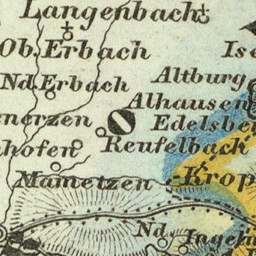 Langenbach
Ob. Erbach
Ise
Nd. Erbach
Altburg
Alhausen
nerzen
Edelsbe
hofen
Reufelback
Mametzen
Krop
Nd.
Ingelm